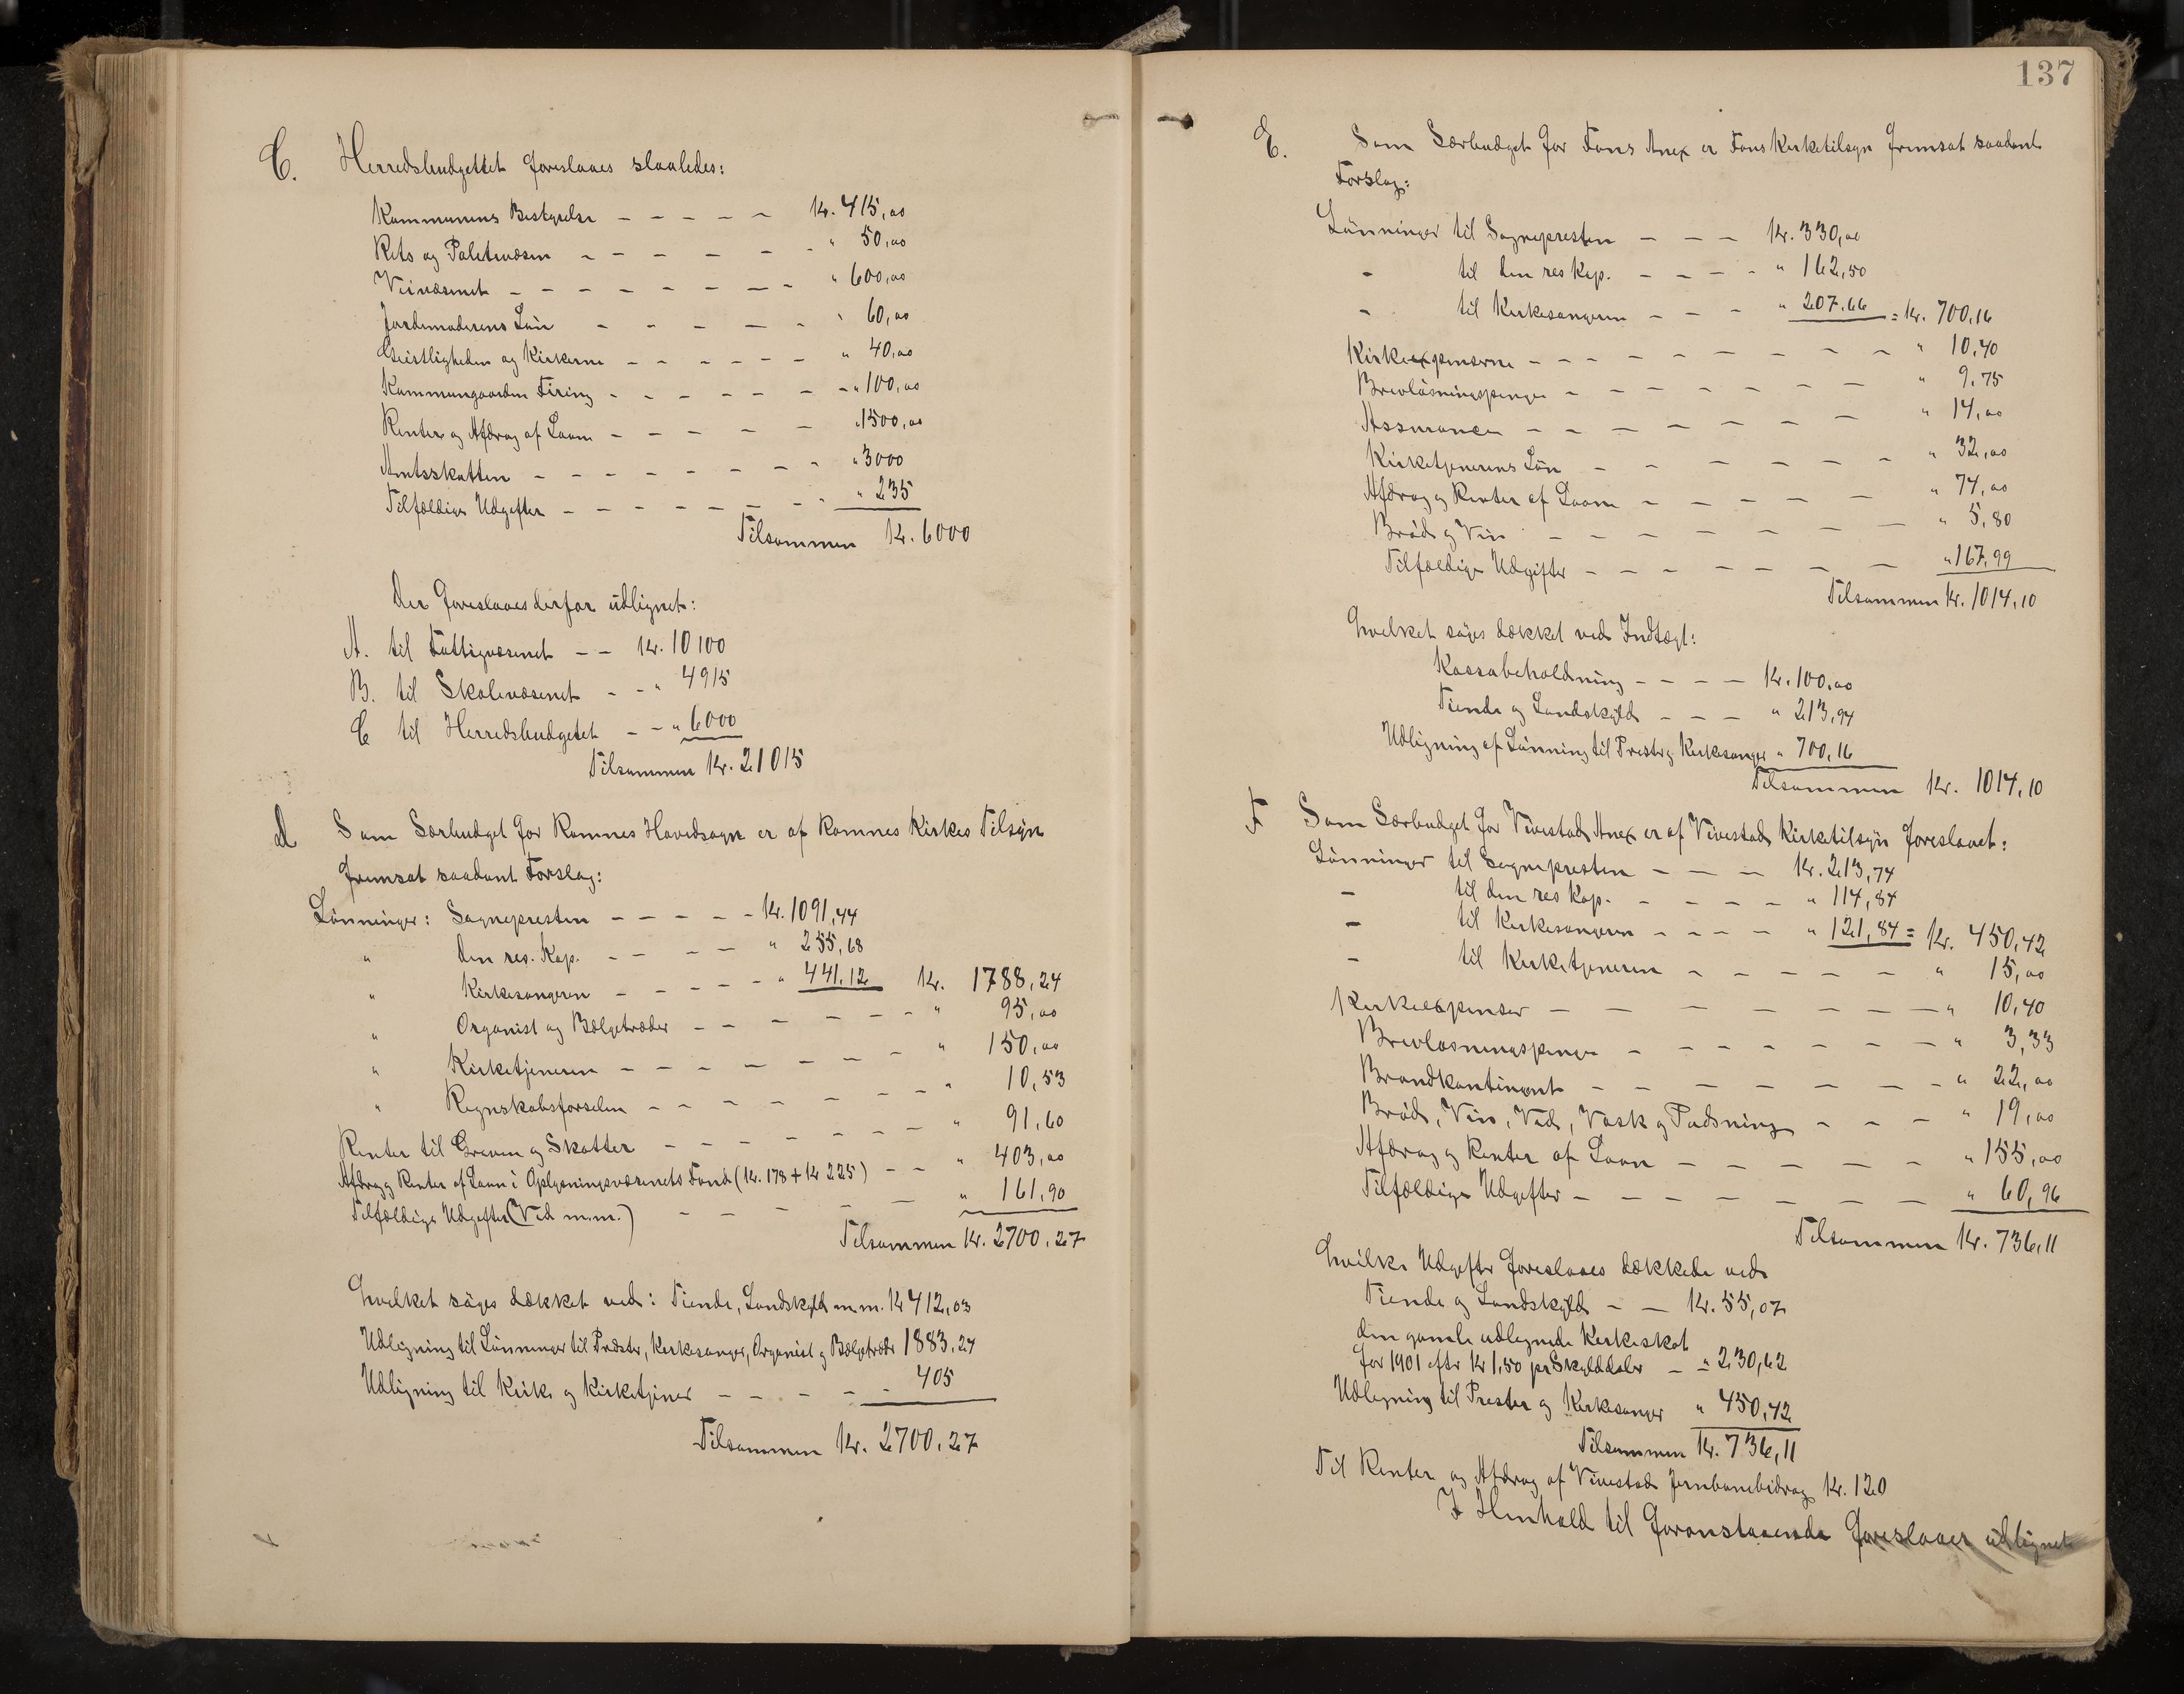 C. Herredsbudgettet foreslaaes slaaledes:
Kommunens Bestyrelse – – – – – Kr. 415,00
Rets og Politivæsen – – – – – – " 50,00
Veivæsenet – – – – – – – – " 600,00
Jordemoderens Løn – – – – – " 60,00
Geistligheden og Kirkerne – – – – – – " 40,00
Kommungaarden Firing – – – – – – " 100,00
Renter og Afdrag af Laan – – – – – " 1500,00
Amtsskatten – – – – – – – – " 3000
Tilfældige Udgifter – – – – – – – " 235
Tilsammen Kr. 6000
Der foreslaaes derfor udlignet:
A. til Fattigvæsenet – – Kr. 10100
B. til Skolevæsenet – – " 4915
C til Herredsbudgetet – – " 6000
Tilsammen Kr. 21015
d Som Særbudget for Ramnes Hovedsogn er af Ramnes Kirkes Tilsyn
fremsat saadant Forslag:
Lønninger: Sognepresten – – – – – Kr. 1091,44
" den res. Kap. – – – – " 255,68
" Kirkesangeren – – – – – " 441.12 Kr. 1788,24
" Organist og Bælgetræder – – – – – – – " 95,00
" Kirketjeneren – – – – – – – – " 150,00
" Regnskabsførselen – – – – – – – – " 10,53
Renter til Graven og Skatter – – – – – – – – " 91,60
Afdrag og Renter af Laan i Oplysningsvæsenets Fond (Kr. 178 + Kr 225) – – " 403,00
Tilfældige Udgifter (Ved m.m.) – – – – – " 161,90
Tilsammen Kr. 2700,27
hvilket søges dækket ved: Tiende, Landskyld m.m. Kr 412,03
Udligning til Lønninger til Præster, Kirkesanger, Organist og Bælgetræder 1883,24
Udligning til Kirke og Kirketjener – – – – – 405
Tilsammen Kr. 2700,27
137
E. Som Særbudget for Fons Anex er Fons Kirketilsyn fremsat saadant
Forslag:
Lønninger til Sognepresten – – – Kr. 330,00
– til den res Kap. – – – – " 162,50
– til Kirkesangeren – – – " 207.66 = Kr. 700,16
Kirkeexpenserne – – – – – – – – " 10,40
Brevløsningspenge – – – – – – – " 9,75
Assurancen – – – – – – – " 14,00
Kirketjenerens Løn – – – – – – " 32,00
Afdrag og Renter af Laan – – – – – " 74,00
Brød og Vin – – – – – – – " 5,80
Tilfældige Udgifter – – – – – – – " 167,99
Tilsammen Kr. 1014,10
hvilket søges dækket ved Indtægt:
Kassabeholdning – – – – Kr. 100,00
Tiende og Landskyld – – – " 213,94
Udligning af Lønning til Prest og Kirkesanger " 700,16
Tilsammen Kr. 1014,10
F Som Særbudget for Vivestad Anex er af Vivestad Kirketilsyn foreslaaet:
Lønninger til Sognepresten – – – Kr. 213,74
– til den res Kap. – – – – " 114,84
– til Kirkesangeren – – – – " 121,84 = Kr. 450,42
– til Kirketjeneren – – – – – " 15,00
Kirkeexpenser – – – – – – – " 10,40
Brevløsningspenge – – – – – – – " 3,33
Brandkontingent – – – – – – – " 22,00
Brød, Vin, Ved, Vask og Pudsning – – – " 19,00
Afdrag og Renter af Laan – – – – – " 155,00
Tilfældige Udgifter – – – – – – – " 60,96
Tilsammen Kr. 736,11
hvilke Udgifter foreslaaes dækkede ved
Tiende og Landskyld – – Kr. 55,07
den gamle udlignede Kirkeskat
for 1901 efter Kr 1,50 pr Skylddaler – " 230,62
Udligning til Prester og Kirkesanger " 450,42
Tilsammen Kr. 736,11
Til Renter og Afdrag af Vivestad Jernbanebidrag Kr. 120
I Henhold til foranstaaende foreslaaes udlignet